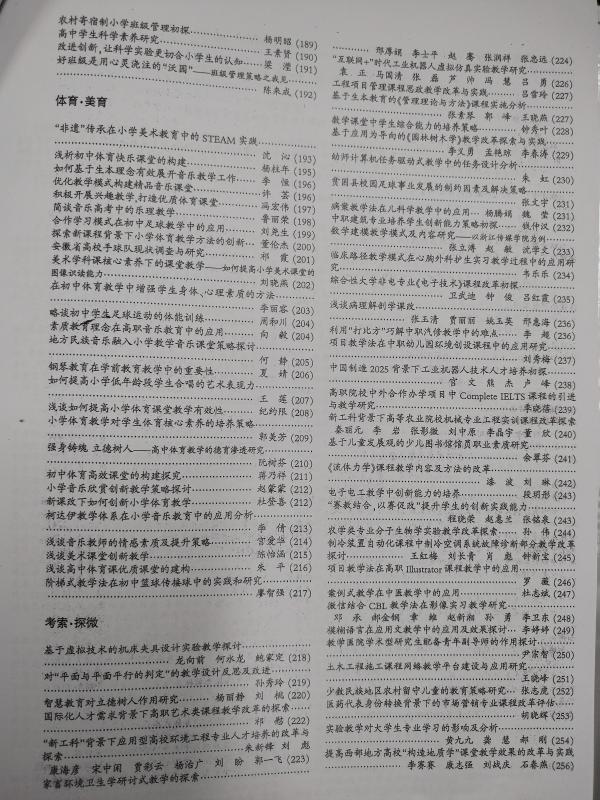 农村寄宿制小学班级管理初探
杨明昭 (189)
高中学生科学素养研究 王素贤 (190)
改进创新,让科学实验更切合小学生的认知 梁滢 (191)
好班级是用心灵浇注的“沃园”——班级管理策略之我见
陈来成 (192)
体育·美育
“非遗”传承在小学美术教育中的 STEAM 实践
沈沁 (193)
浅析初中体育快乐课堂的构建 杨柱年 (195)
如何基于生本理念有效展开音乐教学工作 李恒 (196)
优化教学模式构建精品音乐课堂 许芸 (196)
积极开展兴趣教学,打造优质体育课堂 冯宏伟 (197)
简谈音乐高考中的乐理教学 鲁丽荣 (198)
合作学习模式在初中足球教学中的应用 刘尧生 (199)
探索新课程背景下小学体育教学方法的创新 董伦杰 (200)
安徽省高校手球队现状调查与研究 祁霞 (201)
美术学科课核心素养下的课堂教学——如何提高小学美术课堂的
图像识读能力 刘晓燕 (202)
在初中体育教学中增强学生身体、心理素质的方法
李丽容 (203)
略谈初中学生足球运动的体能训练 周和川 (204)
素质教育理念在高职音乐教育中的应用 向敏 (204)
地方民族音乐融入小学教学音乐课堂策略探讨
何静 (205)
钢琴教育在学前教育教学中的重要性 夏婧 (206)
如何提高小学低年龄段学生合唱的艺术表现力
王莲 (207)
浅谈如何提高小学体育课堂教学有效性 纪约限 (208)
小学体育教学对学生体育核心素养的培养策略
郭美芳 (209)
强身铸魂 立德树人——高中体育教学的德育渗透研究
阮树芬 (210)
初中体育高效课堂的构建探究 蒋乃祥 (211)
小学音乐欣赏创新教学策略探讨 赵蒙蒙 (212)
新课改下如何创新小学体育教学 杜登喜 (212)
柯达伊教学体系在小学音乐教育中的应用分析
李倩 (213)
浅谈音乐教师的情感素质及提升策略 宫爱华 (214)
浅谈美术课堂创新教学 陈怡涵 (215)
浅谈高中体育课优质课堂的建构 朱平 (216)
阶梯式教学法在初中篮球传接球中的实践和研究
廖智强 (217)
考索·探微
基于虚拟技术的机床夹具设计实验教学探讨
龙向前 何水龙 鲍家定 (218)
对“平面与平面平行的判定”的教学设计反思及改进
孙秀玲 (219)
智慧教育对立德树人作用研究 杨丽静 刘桃 (220)
国际化人才需求背景下高职艺术类课程教学改革的探索
祁懿 (222)
“新工科”背景下应用型高校环境工程专业人才培养的改革与
探索 朱新锋 刘彪
康海彦 宋中闲 贾彩云 杨治广 刘盼 郭一飞 (223)
家畜环境卫生学研讨式教学的探索
邢厚娟 李士平 赵赛 张润祥 张忠远 (224)
“互联网+”时代工业机器人虚拟仿真实验教学研究
袁正 马国清 张磊 芦沛 冯慧 吕勇 (226)
工程项目管理课程思政教学改革与实践 吕雪玲 (227)
基于生本教育的《管理理论与方法》课程实施分析
张素琴 郭峰 王晓燕 (227)
数学课堂中学生综合能力的培养策略 钟秀叶 (228)
基于应用为导向的《园林树木学》教学改革探索与实践
李义勇 孟艳琼 李春涛 (229)
幼师计算机任务驱动式教学中的任务设计分析
朱虹 (230)
贫困县校园足球事业发展的制约因素及解决策略
张文宇 (231)
病案教学法在儿科学教学中的应用 杨腾娟 魏莹 (231)
中职建筑专业培养学生创新能力策略初探 钱仲汉 (232)
数学建模教学模式及内容研究——以浙江传媒学院为例
张立涛 赵敏 沈学文 (233)
临床路径教学模式在心胸外科护生实习教学过程中的应用研
究 韦乐乐 (234)
综合性大学非电专业《电子技术》课程改革初探
卫武迪 钟俊 吕红霞 (235)
浅谈病理解剖学课改
张玉清 贾丽丽 姚玉英 邢惠海 (236)
利用“打比方”巧解中职汽修教学中的难点 李超 (236)
项目教学法在中职幼儿园环境创设课程中的应用研究
刘秀梅 (237)
中国制造 2025 背景下工业机器人技术人才培养初探
官文 熊杰 卢峰 (238)
高职院校中外合作办学项目中 Complete IELTS 课程的引进
与教学研究 李晓蓓 (239)
新工科背景下高等农业院校机械专业工程实训课程改革探索
秦丽元 李岩 张影微 刘中原 李晶宇 董欣 (240)
基于儿童发展观的少儿图书馆馆员职业素质研究
佘翠芬 (241)
《流体力学》课程教学内容及方法的改革
漆波 刘琳 (242)
电子电工教学中创新能力的培养 段明彤 (243)
“赛教结合,以赛促改”提升学生的创新实践能力
程晓荣 赵惠兰 张铭泉 (243)
农学类专业分子生物学实验教学改革探索 孙伟 (244)
制冷装置自动化课程中制冷空调系统故障诊断部分教学改革
探讨 王红梅 刘长青 肖彪 钟新宝 (245)
项目教学法在高职 Illustrator 课程教学中的应用
罗薇 (246)
案例式教学在中医教学中的应用 杜志斌 (247)
微信结合 CBL 教学法在影像实习教学研究
邓承 郝金钢 章维 赵新湘 孙勇 李卫东 (248)
模糊语言在应用文教学中的应用及效果探讨 李婷婷 (249)
教学医院学术型研究生配备青年副导师的作用探讨
尹宗智 (250)
土木工程施工课程网络教学平台建设与应用研究
王晓峰 (251)
少数民族地区农村留守儿童的教育策略研究 张志虎 (252)
医药代表身份转换背景下的市场营销专业课程改革评估
胡晓辉 (253)
实验教学对大学生专业学习的影响及分析
黄九九 龚慧 郝刚 (254)
提高西部地方高校“构造地质学”课堂教学效果的改革与实践
李赛赛 康志强 刘战庆 石春燕 (256)